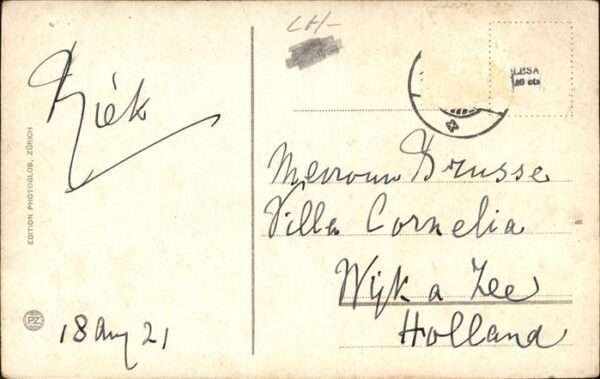 Riék
18 Aug 21
EDITION PHOTOGLOB, ZÜRICH
PZ
Mevrouw Drusse
Villa Cornelia
Wijk a Zee
Holland